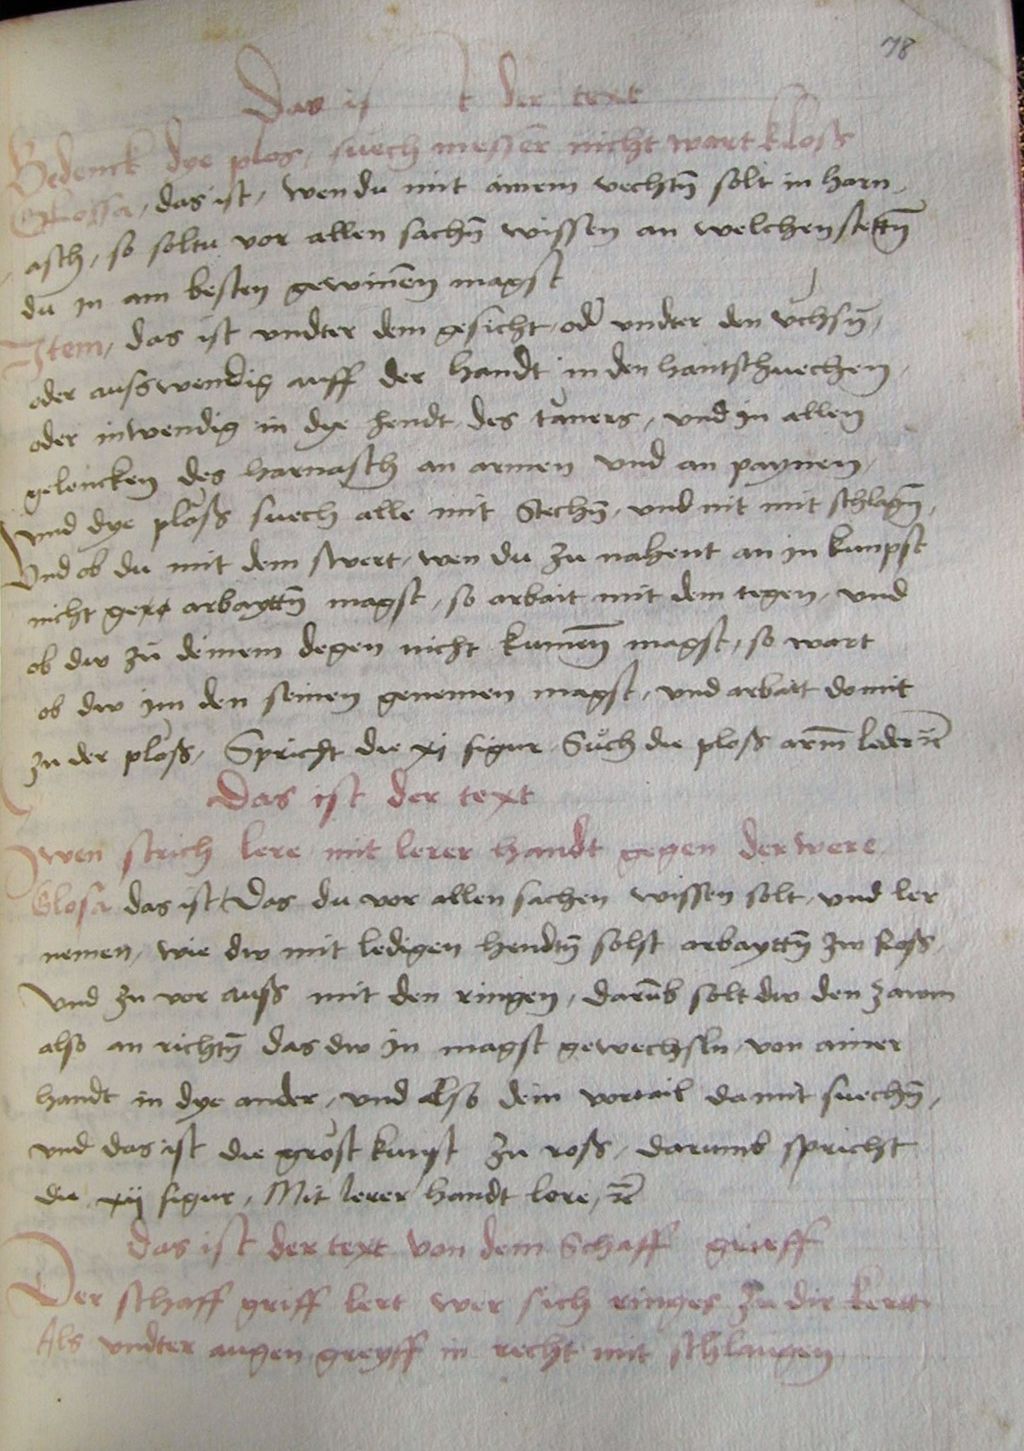 78
Das ist der text
Bedenck dye plos, suech messer nicht wart kloss
Glossa, das ist, wen du mit ainem vechtn̄ solt in harn
asch, so soltu vor allen sachn̄ wissen an welchen stettn̄
du in am besten gewinnen magst
Item, das ist undter dem gesicht, oder undter den üchsn̄,
oder ausswendig auff der handt in den hantschuechen,
oder inwendig in dye hendt des taners, und in allen
gelencken des harnasch an armen und an paynen,
und dye plöss suech alle mit stechn̄, und nit mit schlagn̄,
Und ob du mit dem swert, wen du zu nahent an in kumpst
nicht arbayttn̄ magst, so arbait mit dem tegen, und
ob dw zu deinem degen nicht kumen̄ magst, so wart
ob dw im den seinen genemen magst, und arbait domit
zu der plöss, Spricht die xj figur Such die ploss arm̄ leder
Das ist der text
Zwen strich lere mit lerer handt gegen der were
Glosa das ist Das du vor allen sachen wissen solt, und ler
nemen, wie dw mit ledigen hendtn̄ solst arbayttn̄ zw Ross,
Und zu vor auss mit den ringen, darūb solt dw den zawm
also an richtn̄ das dw in magst gewechsln von ainer
handt in dye ander, und also dein vortail da mit suechn̄,
und das ist die gröst kunst zu ross, darumb spricht
die xij figur, Mit lerer handt lere,
das ist der text von dem Schaff grieff
Der schaff griff lert wer sich ringes zu dir kertt
Als undter augen greyff in recht mit schlaugen